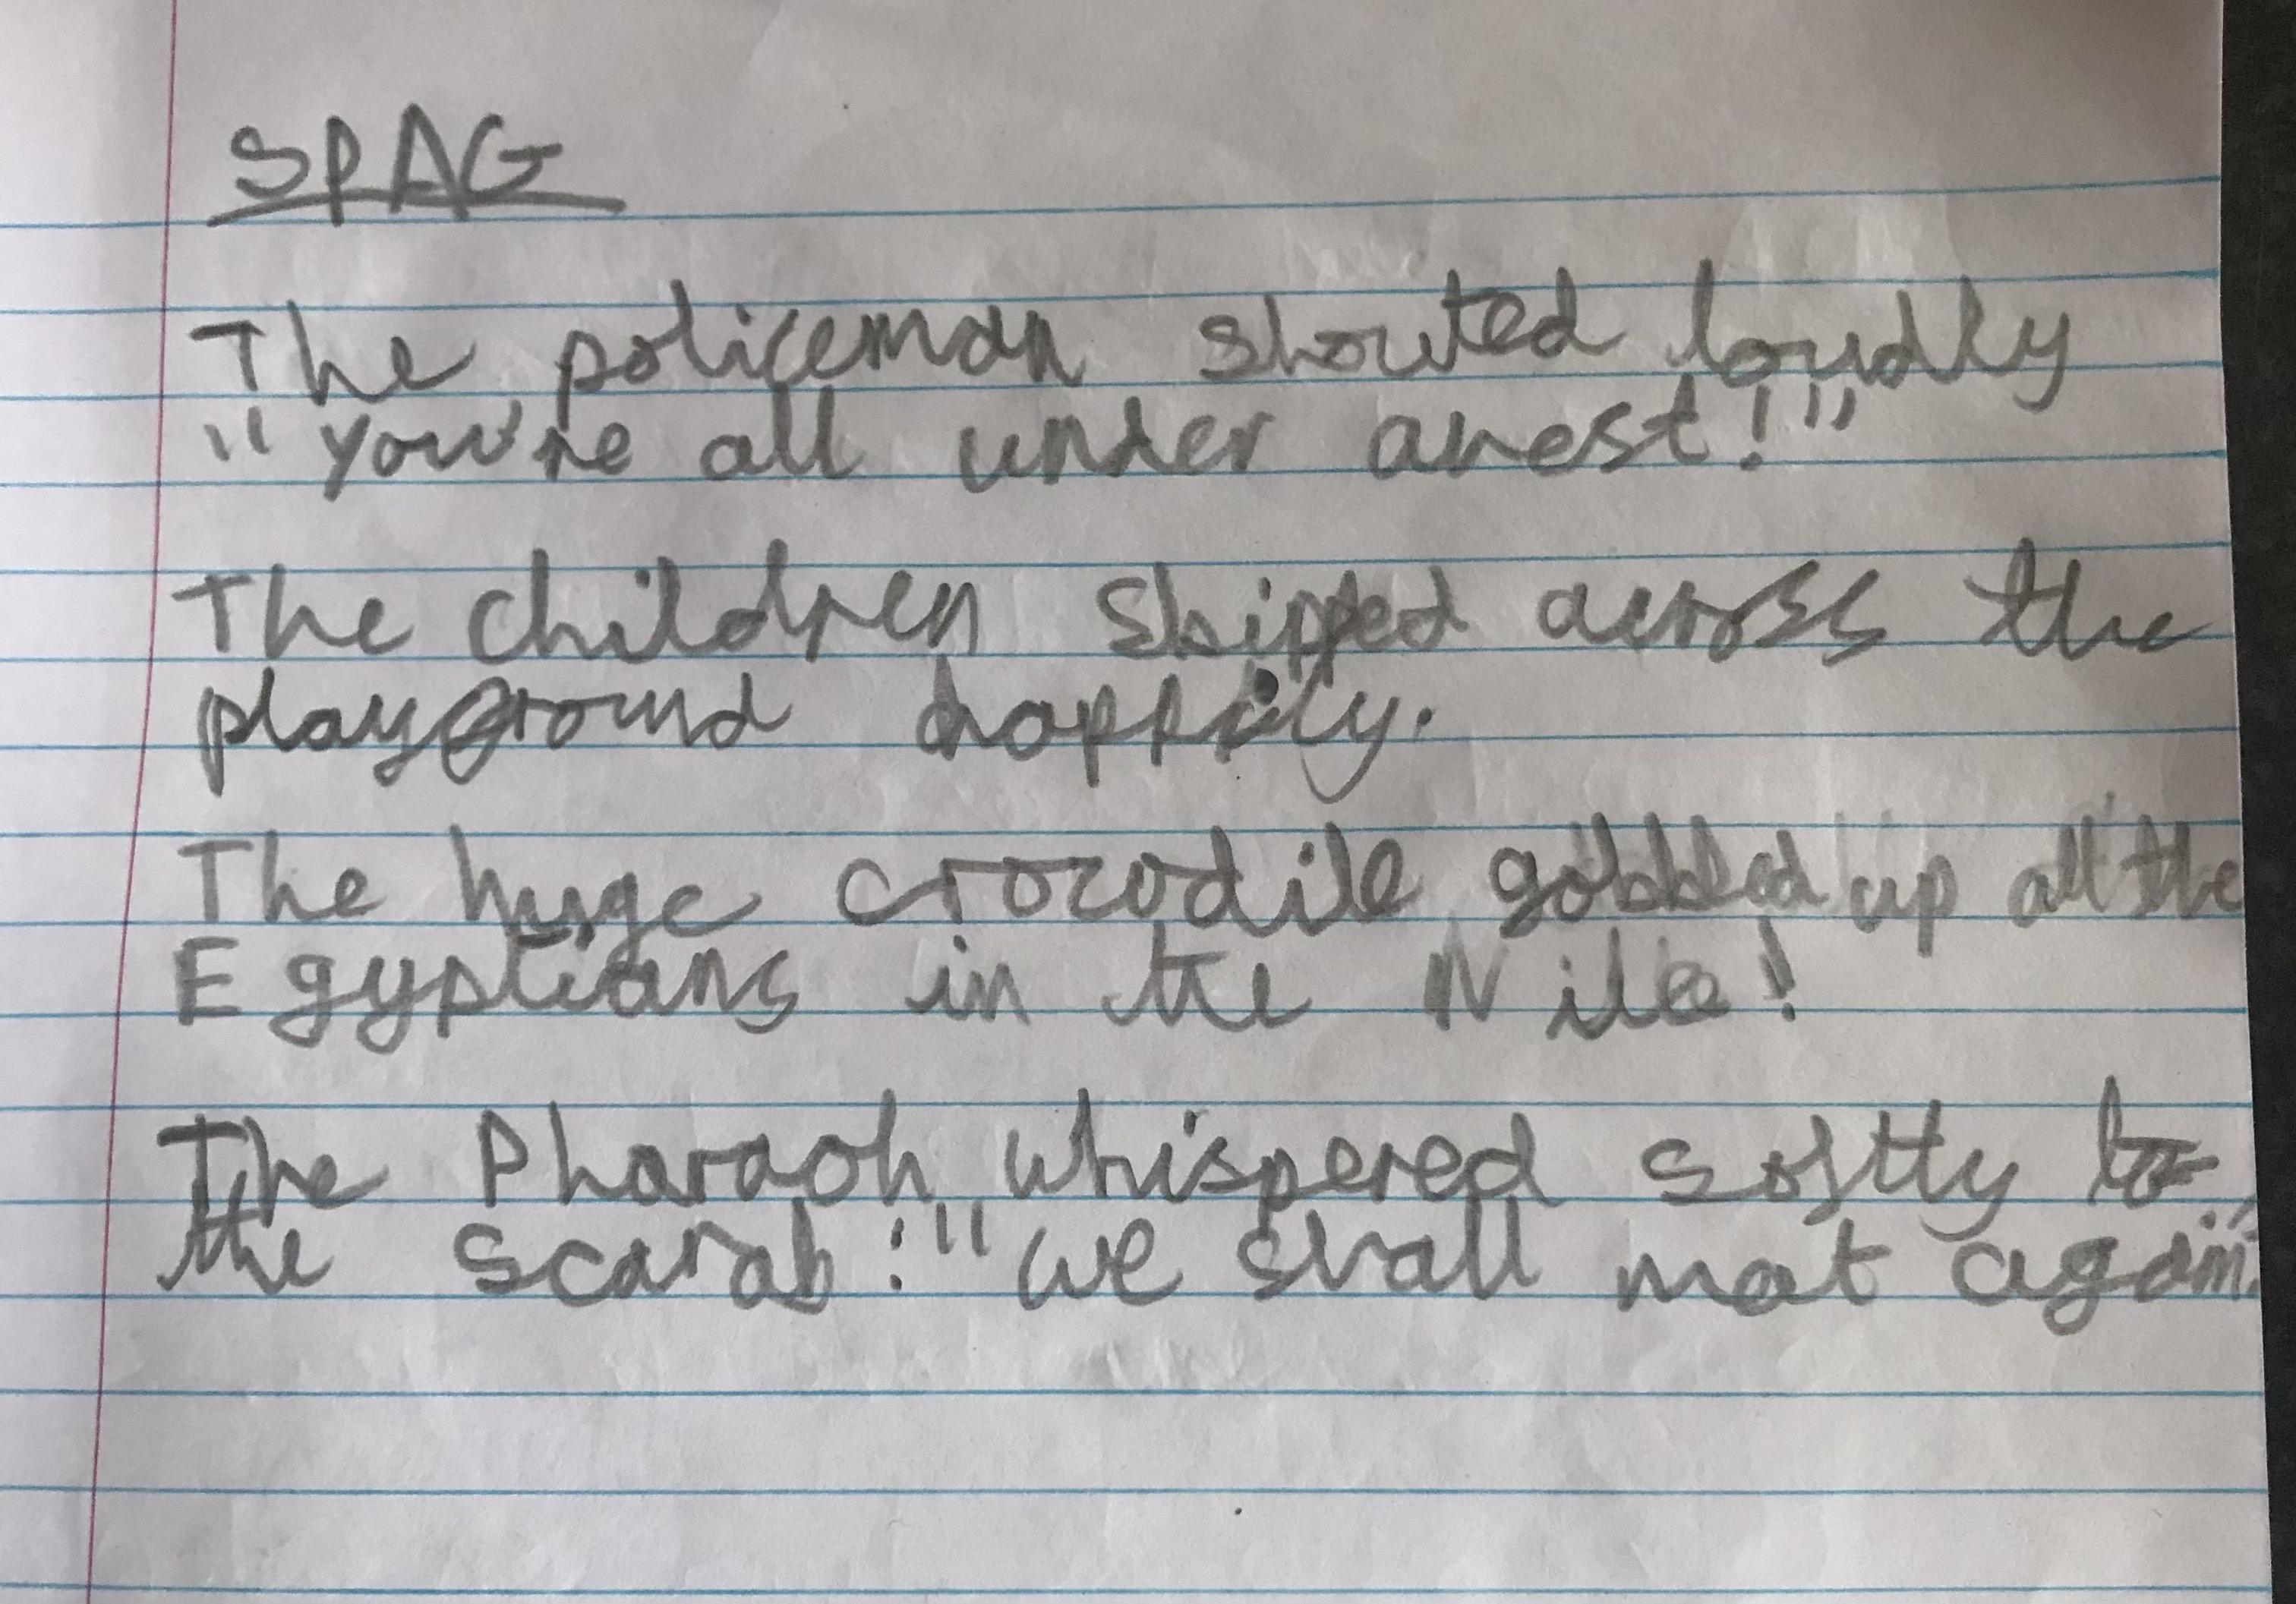 SPAG
The policeman shouted loudly
"You're all under arrest!"
The children skipped across the
playground happily.
The huge crocodile gobbled up all the
Egyptians in the Nile!
The Pharaoh whispered softly to
the scarab: "we shall meat again."